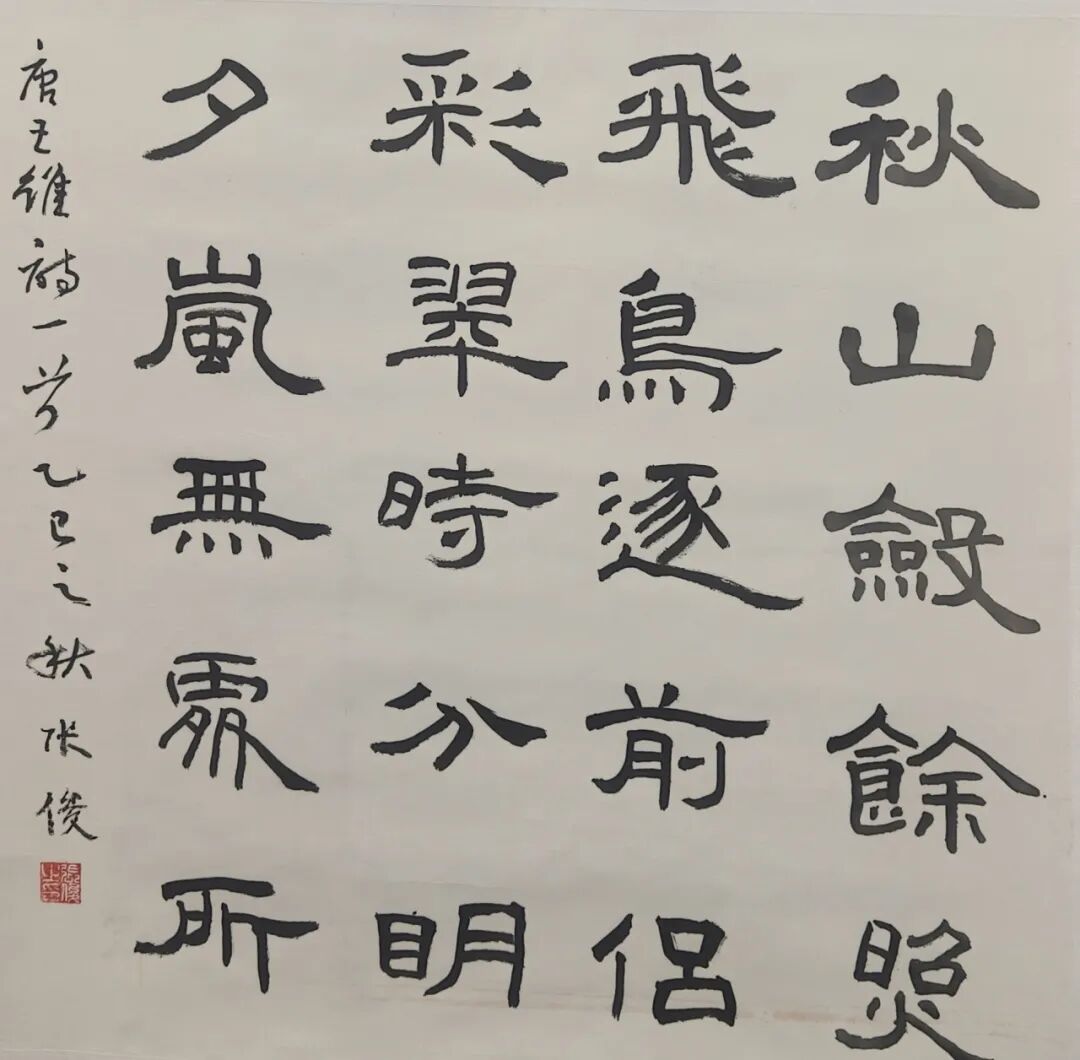 秋山斂餘照
飛鳥逐前侶
彩翠時分明
夕嵐無處所
唐王維詩一首乙巳之秋張俊
張俊之印